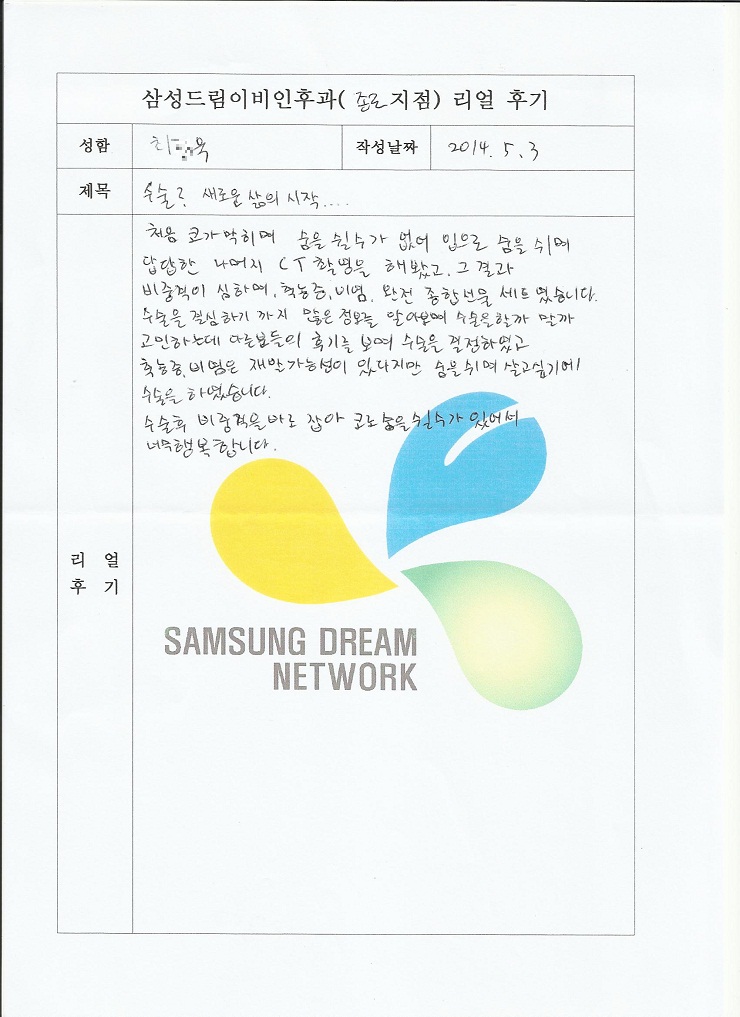 삼성드림이비인후과( 종로지점) 리얼 후기
성함 최 욱 작성날짜 2014. 5. 3
제목 수술? 새로운 삶의 시작....
처음 코가 막히며 숨을 쉴수가 없어 입으로 숨을 쉬며
답답한 나머지 CT 촬영을 해봤고, 그 결과
비중격이 심하며, 축농증, 비염, 완전 종합선물 세트였습니다.
수술을 결심하기 까지 많은 정보를 알아보며 수술을할까 말까
고민하는데 다른분들이 후기를 보며 수술을 결정하였고
축농증, 비염은 재발가능성이 있다지만 숨을쉬며 살고싶기에
수술을 하였습니다.
수술후 비중격을바로 잡아 코로숨을쉴수가 있어서
너무행복합니다.
리 얼
후 기
SAMSUNG DREAM
NETWORK